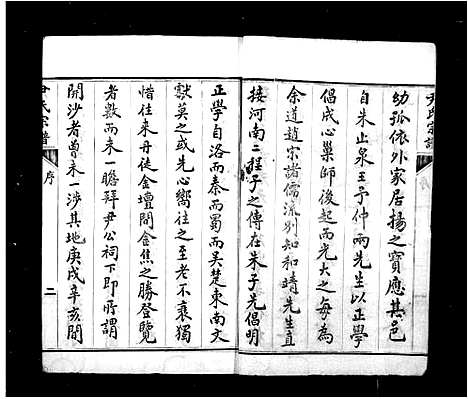 尹氏宗譜
幼孤依外家居揚之寶應其邑
自朱止泉王予仲兩先生以正學
倡成心巢師後起而光大之每為
余道趙宋諸儒流別知和靖先生直
接河南二程子之傳在朱子先倡明
正學自洛而秦而蜀而吳楚東南文
獻莫之或先心嚮往之至老不衰獨
惜往来丹徒金壇間金焦之勝登覽
者數而未一瞻拜尹公祠下即所謂
開沙者曾未一涉其地庚戌辛亥間
尹氏宗譜
序
二